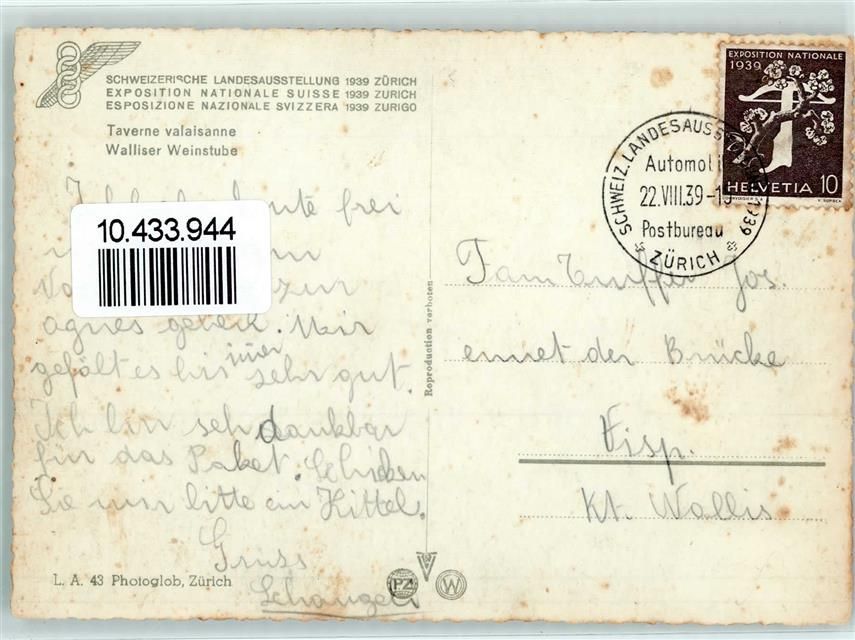 SCHWEIZERISCHE LANDESAUSSTELLUNG 1939 ZÜRICH
EXPOSITION NATIONALE SUISSE 1939 ZURICH
ESPOSIZIONE NAZIONALE SVIZZERA 1939 ZURIGO
Taverne valaisanne
Walliser Weinstube
Ich heute frei
10.433.944
zur
agnes geteilt. Mir
gefält es hir imer sehr gut.
Ich bin seh dankbar
für das Paket. Schiken
Sie mir bitte ein Kittel.
Gruss
L. A. 43 Photoglob, Zürich
Reproduction verboten
PZ
W
EXPOSITION NATIONALE
1939
HELVETIA 10
SCHWEIZ. LANDESAUSS 1939
Automobil
22.VIII.39
Postbureau
ZÜRICH
Fam Jos.
ennet der Brücke
Visp.
Kt. Wallis